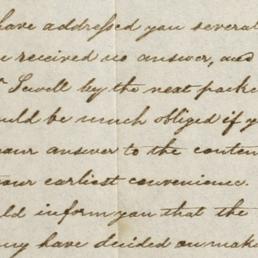 have addressed you several
received no answer, and
Sewell by the next packe
uld be much obliged if y
our answer to the conten
our earliest convenience.
ld inform you that the
any have decided on mak